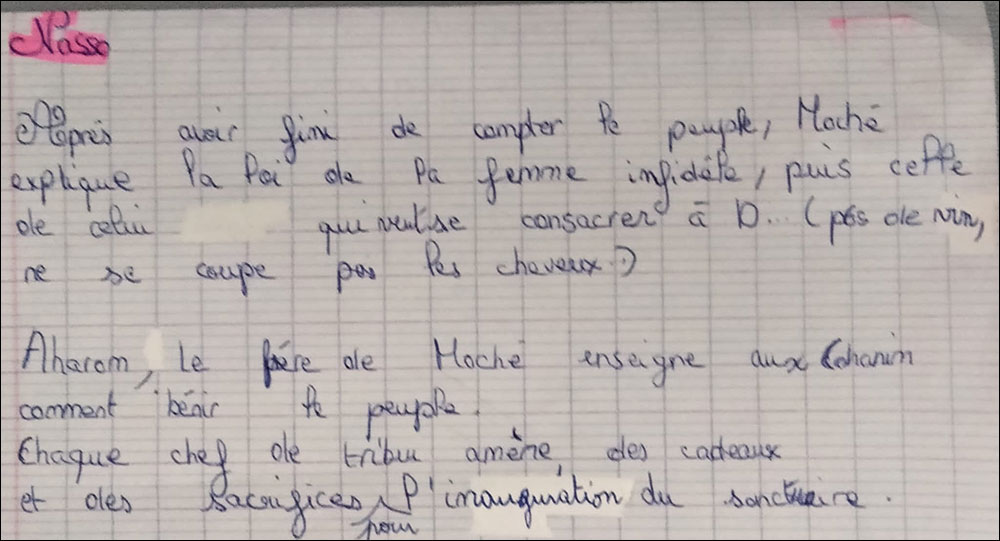 Nasso
Après avoir fini de compter le peuple, Moché
explique la loi de la femme infidèle, puis celle
de celui qui veut se consacrer à D... (pas de vin,
ne se coupe pas les cheveux.)
Aharom, le frère de Moché enseigne aux Cohanim
comment bénir le peuple.
Chaque chef de tribu amène des cadeaux
et des sacrifices pour l'inauguration du sanctuaire.